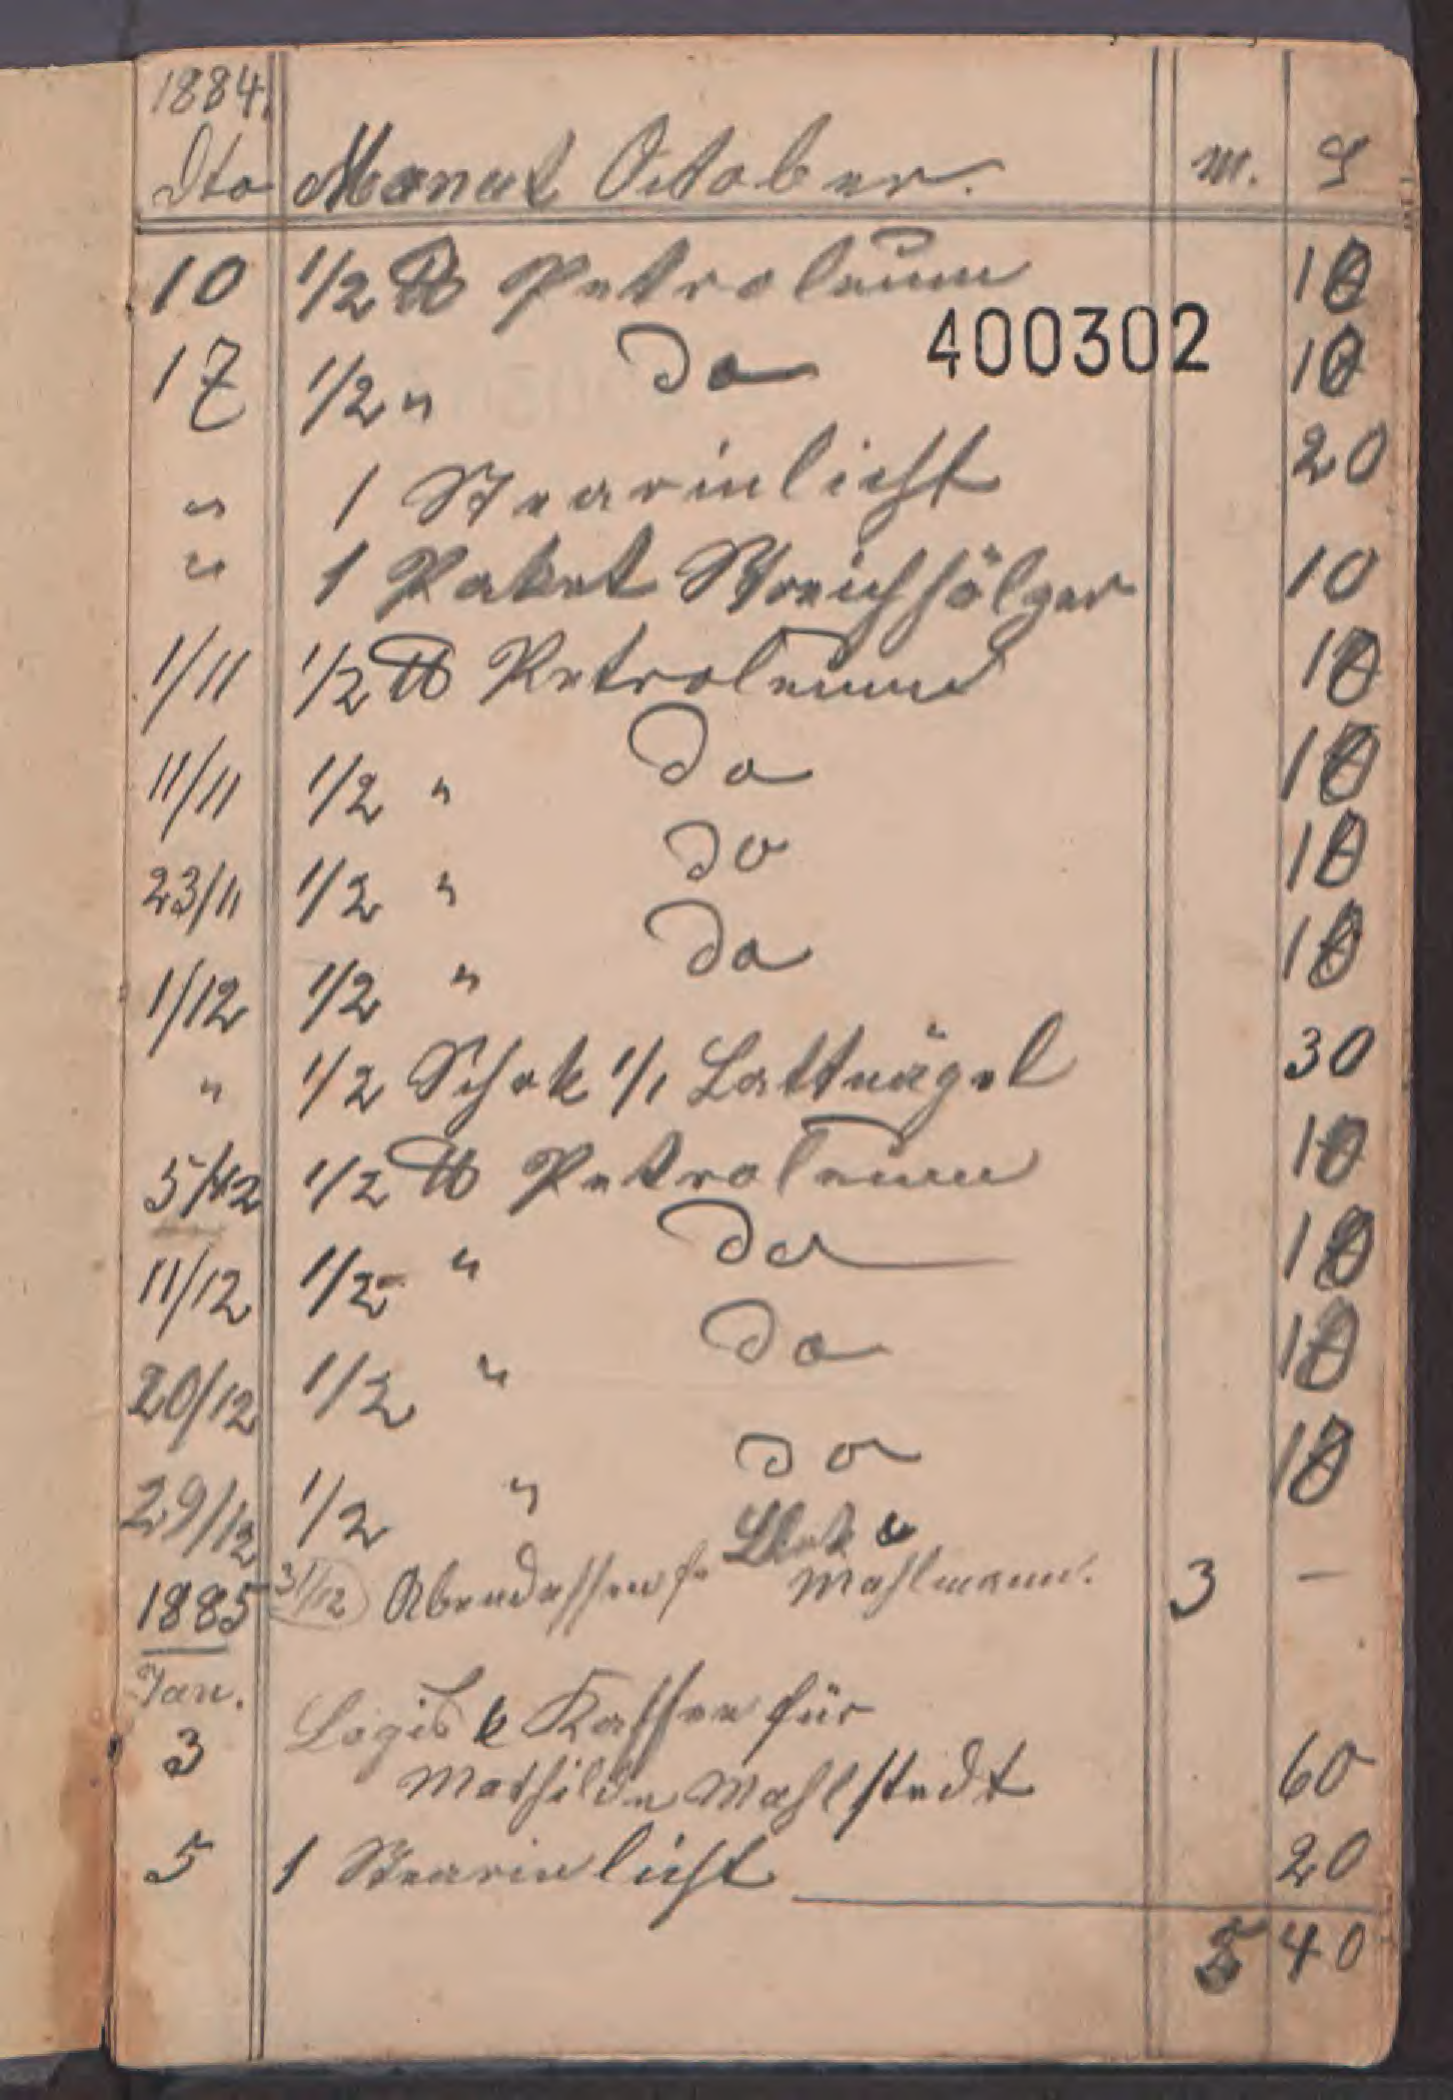 1884.
Dto Monat October. M. ₰
10 1/2 ℔ Petroleum 10
17 1/2 " do 10
400302
" 1 Stearinlicht 20
" 1 Paket Streichhölzer 10
1/11 1/2 ℔ Petroleum 10
11/11 1/2 " do 10
23/11 1/2 " do 10
1/12 1/2 " do 10
" 1/2 Schok 1/1 Lattnägel 30
5/12 1/2 ℔ Petroleum 10
11/12 1/2 " do 10
20/12 1/2 " do 10
29/12 1/2 " do 10
1885 31/12 Abendessen f. Mahlmann. 3 —
Jan.
3 Logis & Kaffee für
Mathilde Mahlstedt 60
5 1 Stearinlicht 20
5 40